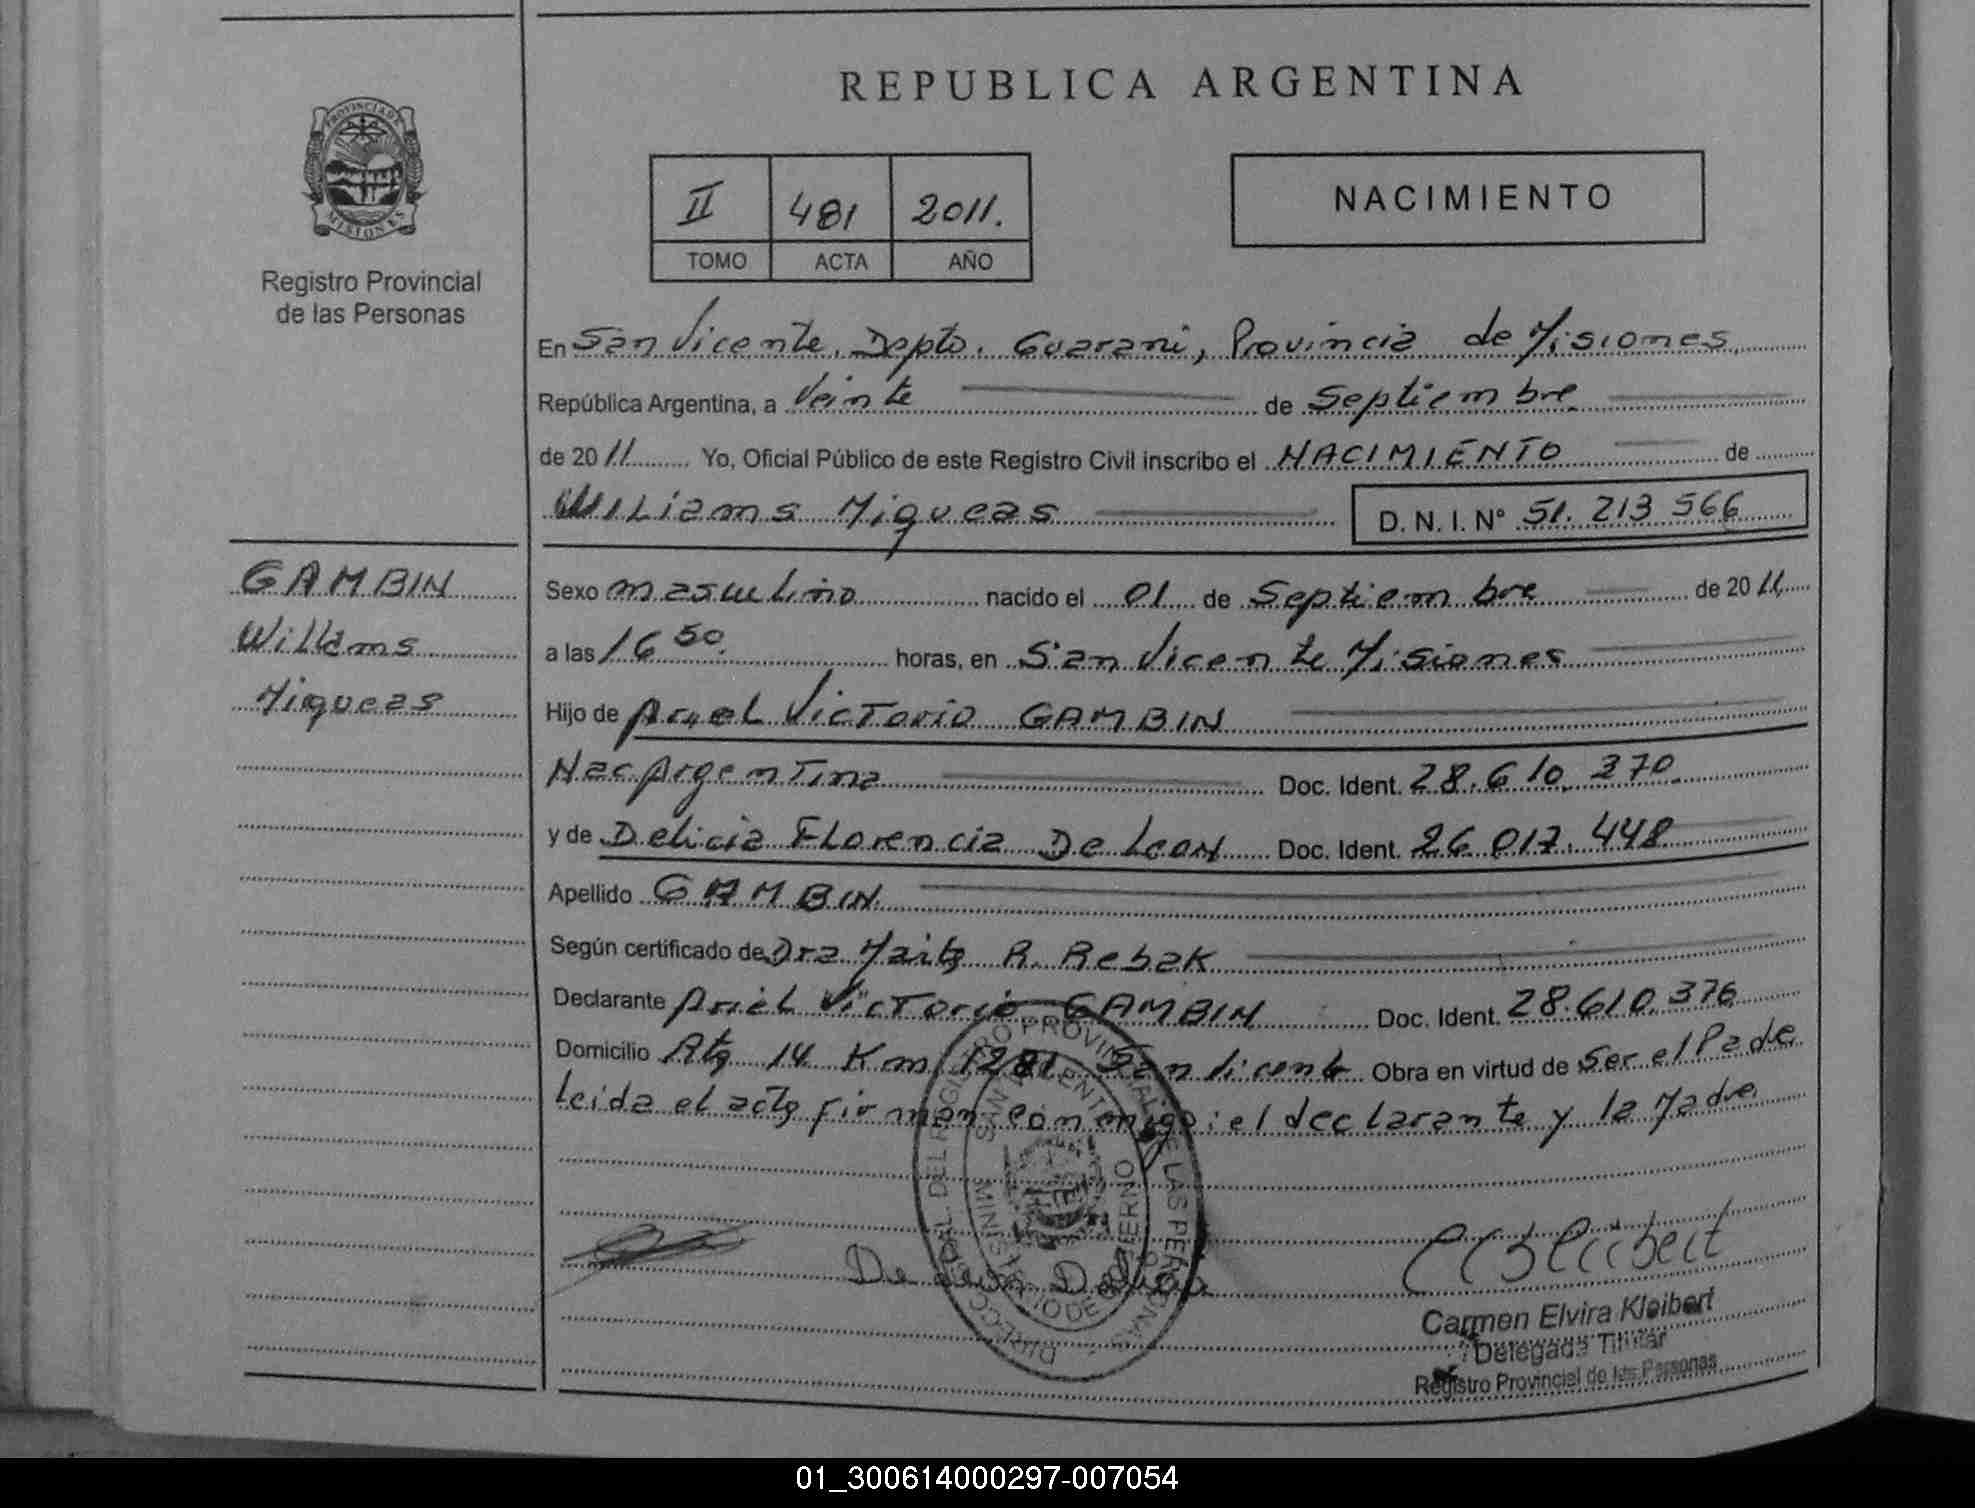 REPUBLICA ARGENTINA
PROVINCIA DE
MISIONES
Registro Provincial
de las Personas
II 481 2011.
TOMO ACTA AÑO
NACIMIENTO
En San Vicente, Depto. Guarani, Provincia de Misiones
República Argentina, a Veinte de Septiembre
de 2011 Yo, Oficial Público de este Registro Civil inscribo el NACIMIENTO de
Wiliams Miqueas D. N. I. N° 51.213 566
GAMBIN
Williams
Miqueas
Sexo masculino nacido el 01 de Septiembre de 2011
a las 16 50 horas, en San Vicente Misiones
Hijo de Ariel Victorio GAMBIN
Nac Argentina Doc. Ident. 28.610.370
y de Delicia Florencia De Leon Doc. Ident. 26.017.448
Apellido GAMBIN
Según certificado de Dra R. Rebak
Declarante Ariel Victorio GAMBIN Doc. Ident. 28.610.376
Domicilio 14 Km 1281 San Vicente Obra en virtud de Ser el Padre
Leida el acta firman conmigo: el declarante y la Madre
De Leon Delicia
Carmen Elvira Kleibert
Delegada Titular
Registro Provincial de las Personas
01_300614000297-007054